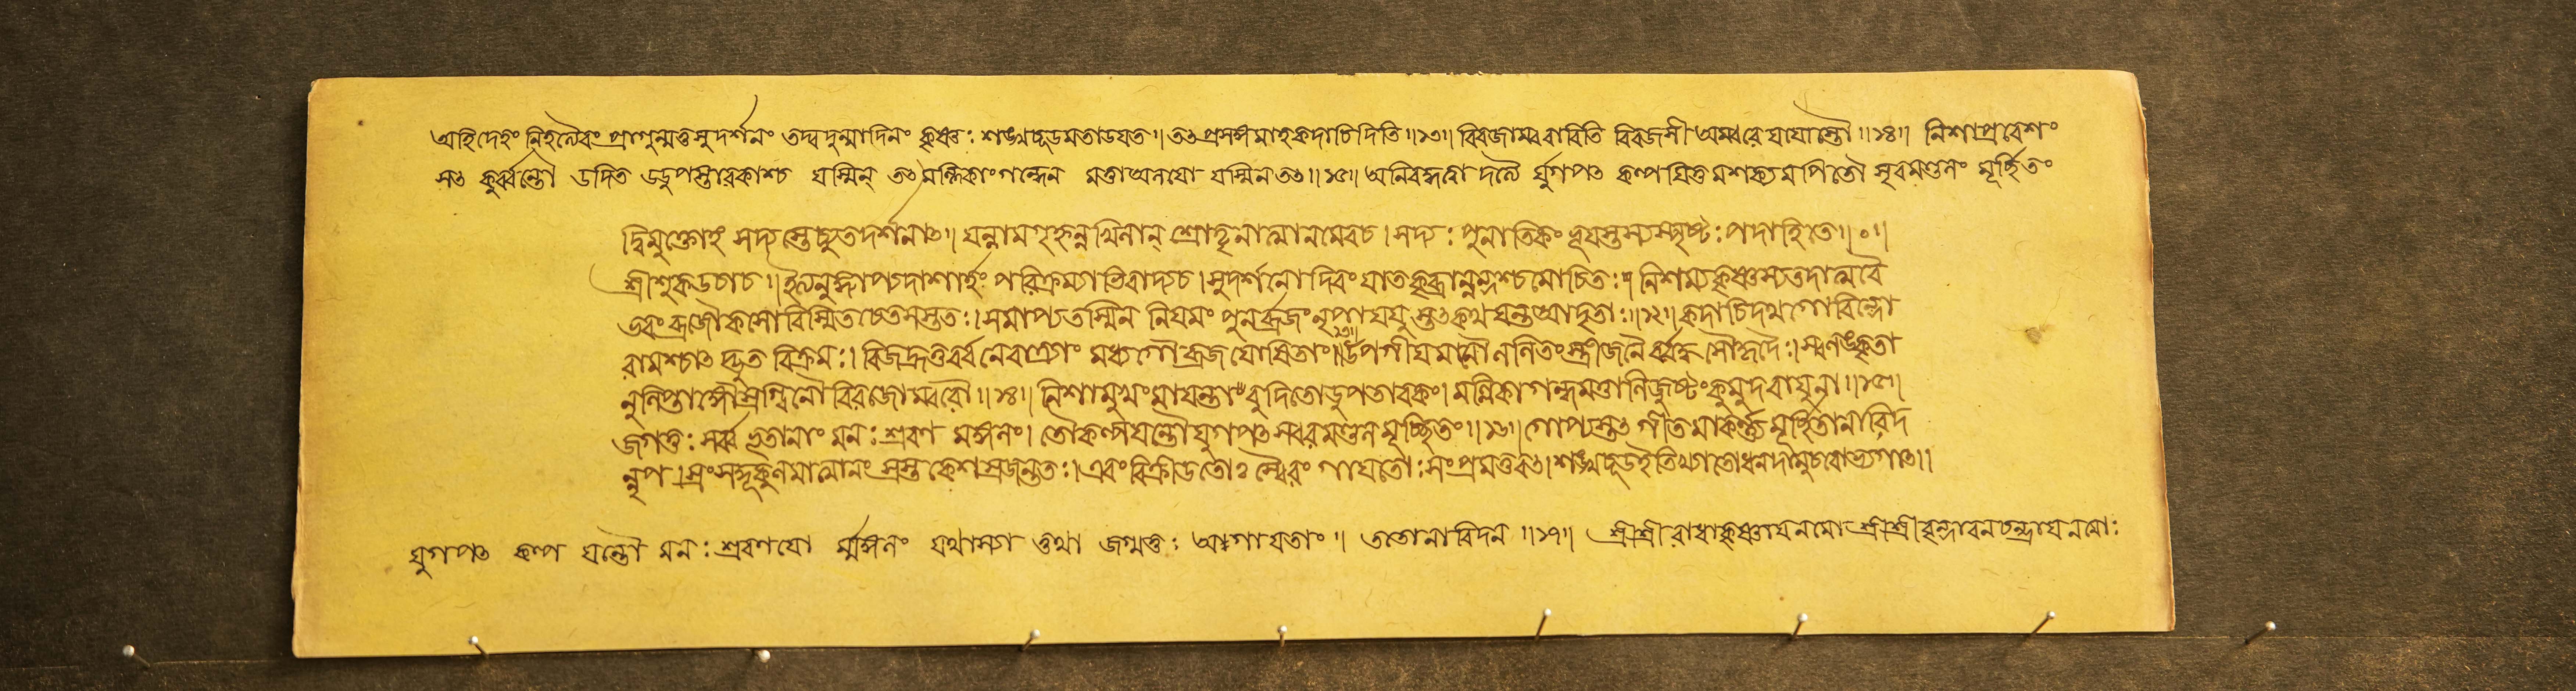 অহিদেহং নিহত্যৈবং প্রাগুন্মত্তসুদর্শনং তদ্বদুন্মাদিনং কৃষ্ণঃ শঙ্খচূড়মতাড়যত৷৷ তৎপ্রসঙ্গমাহকদাচিদিতি৷৷১৩৷৷ বিরজাম্বরাবিতি বিরজসী অম্বরে যযোস্তৌ৷৷১৪৷৷ নিশাপ্রবেশং
সৎ কুর্ব্বন্তৌ উদিত উডুপস্তারকাশ্চ যস্মিন্ তৎ মল্লিকাগন্ধেন মত্তাঅলযো যস্মিনতৎ৷৷১৫৷৷ যুগপৎ কল্পযিতুমশক্যমপিতৌ স্বরমণ্ডলং মূর্চ্ছিতং
দ্বিমুক্তোহং সদ্যস্তেচ্যুতদর্শনাৎ৷৷ যন্নামগৃহ্নন্নখিলান্ শ্রোতৄনাত্মানমেবচ৷ সদ্যঃ পুনাতিকিং ভূযস্তস্যস্পৃষ্টঃপদাহিতে৷৷০৷৷
শ্রীশুকউবাচ৷৷ ইত্যনুজ্ঞাপ্যদাশার্হং পরিক্রম্যাভিবাদ্যচ৷ সুদর্শনোদিবং যাতকৃচ্ছ্রান্নন্দশ্চমোচিতঃ৷৷ নিশম্যকৃষ্ণস্যতদাত্মবৈ
ভবং ব্রজৌকসোবিস্মিতচেতসস্ততঃ৷ সমাপ্যতস্মিন নিযমং পুনর্ব্রজং নৃপাযযুস্তৎকথযন্তআদৃতাঃ৷৷১২৷৷ কদাচিদথগোবিন্দো
রামশ্চাদ্ভুত বিক্রমঃ৷ বিজহ্রতুর্বনেরাত্র্যাং মধ্যগৌব্রজযোষিতাং৷৷১৩৷৷ উপগীযমানৌললিতংস্ত্রীজনৈর্বদ্ধসৌহৃদৈঃ৷ স্বলঙ্কৃতা
নুলিপ্তাঙ্গৌস্রগ্বিনৌবিরজোম্বরৌ৷৷১৪৷৷ নিশামুখংমানযন্তাবুদিতোডুপতারকং৷ মল্লিকাগন্ধমত্তালিজুষ্টংকুমুদবাযুনা৷৷১৫৷৷
জগতুঃ সর্ব্বভূতানাং মনঃশ্রবণ মঙ্গলং৷ তৌকল্পযন্তৌযুগপৎস্বরমণ্ডলমূর্চ্ছিতং৷৷১৬৷৷ গোপ্যস্তৎগীতমাকর্ণ্যমূর্চ্ছিতানাবিদ
ন্নৃপ৷ স্রংসদ্দুকুলমাত্মানং স্রস্তকেশস্রজন্ততঃ৷ এবংবিক্রীডতোঃ স্বৈরং গাযতোঃ সংপ্রমত্তবৎ৷ শঙ্খচূডইতিখ্যাতোধনদানুচরোভ্যগাৎ৷৷
যুগপৎ কল্প যন্তৌ মনঃ শ্রবণযো র্মঙ্গলং যথাস্যা তথা জগতুঃ আগাযতাং৷৷ ততোনাবিদন৷৷১৭৷৷ শ্রীশ্রীরাধাকৃষ্ণাযনমো শ্রীশ্রীবৃন্দাবনচন্দ্রাযনমোঃ